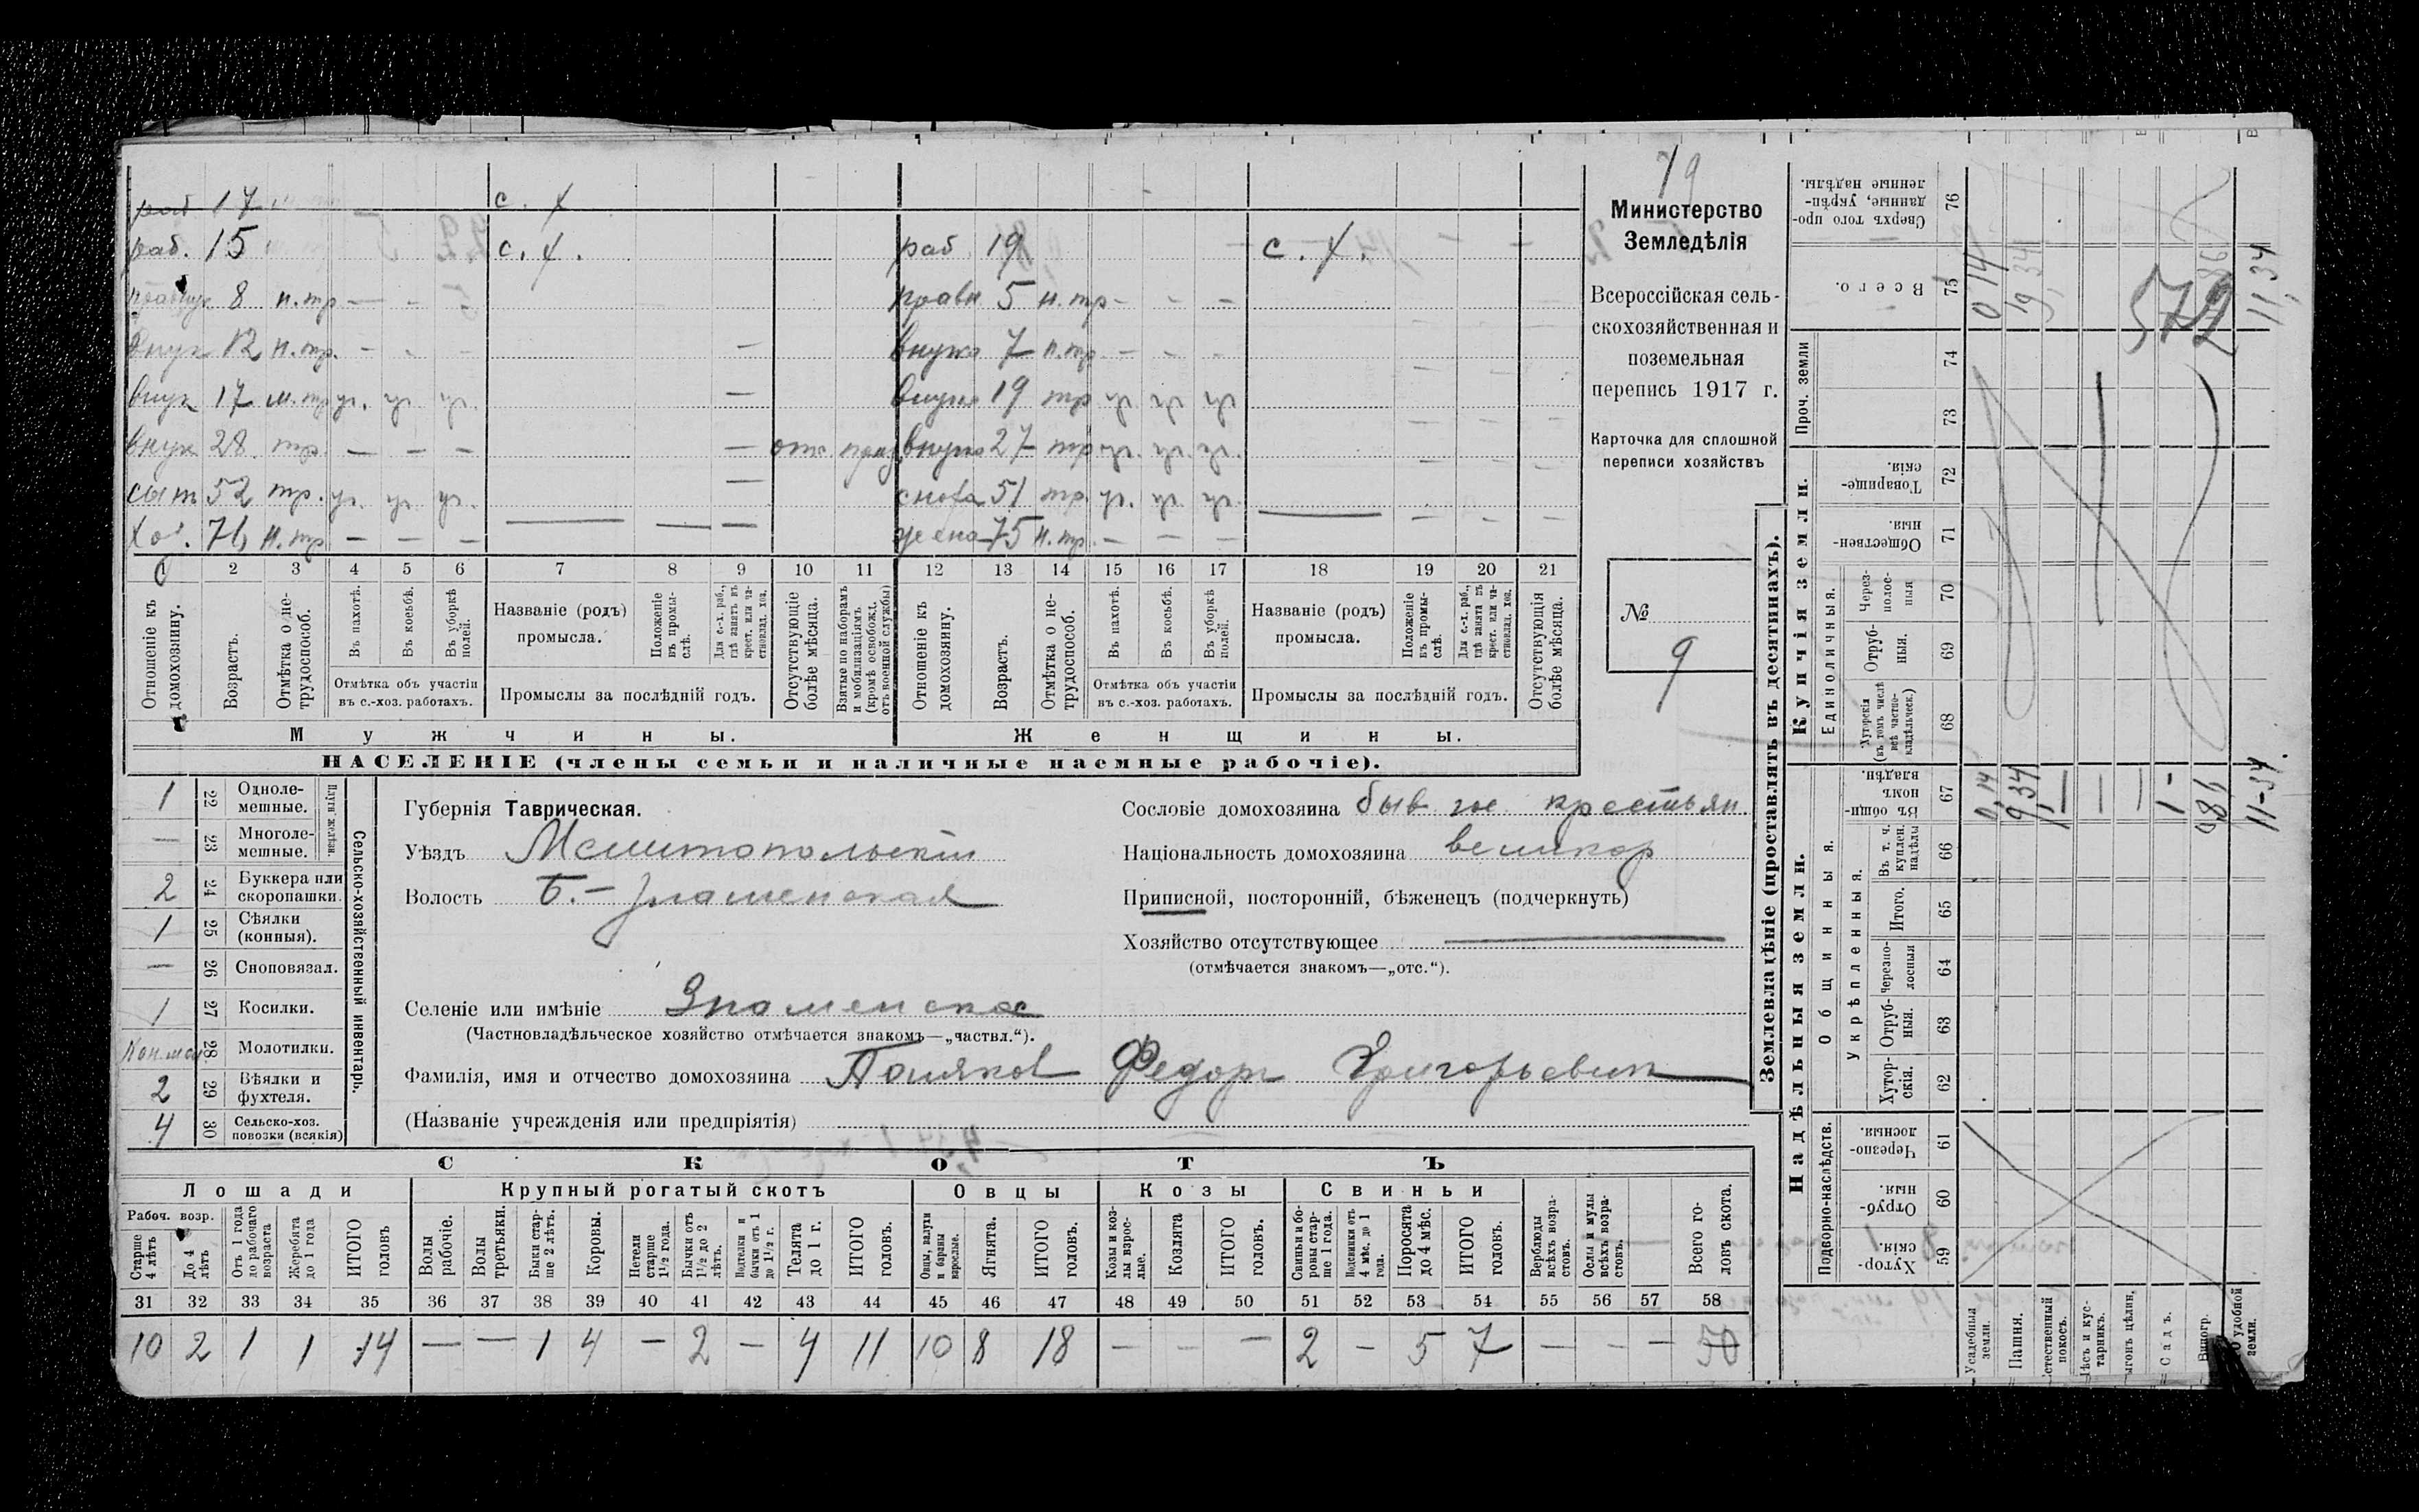 19
раб 17 с. х
раб. 15 с. х. раб 19 с. х.
правнук 8 н. тр — - - правн 5 н. тр - - -
внук 12 н. тр. - - - — внука 7 н. тр. — - -
внук 17 м. тр уч. уч. уч. — внука 19 тр уч. уч. уч.
внук 28 тр. — — — — отс. внука 27 тр. уч. уч. уч.
сын 52 тр. уч. уч. уч. — сноха 51 тр. уч. уч. уч.
Хоз. 76 н. тр — — — — — — жена 75 н. тр. — — — — — - -
1 2 3 4 5 6 7 8 9 10 11 12 13 14 15 16 17 18 19 20 21
Отношеніе къ домохозяину.
Возрастъ.
Отмѣтка о не-трудоспособ.
Въ пахотѣ.
Въ косьбѣ.
Въ уборкѣ полей.
Отмѣтка объ участіи
въ с.-хоз. работахъ.
Названіе (родъ)
промысла.
Положеніе въ промы-слѣ.
Для с.-х. раб., гдѣ занятъ въ крест. или ча-стновлад. хоз.
Промыслы за послѣдній годъ.
Отсутствующіе болѣе мѣсяца.
Взятые по наборамъ и мобилизаціямъ (кромѣ освобожд. отъ военной службы)
Отношеніе къ домохозяину.
Возрастъ.
Отмѣтка о не-трудоспособ.
Въ пахотѣ.
Въ косьбѣ.
Въ уборкѣ полей.
Отмѣтка объ участіи
въ с.-хоз. работахъ.
Названіе (родъ)
промысла.
Положеніе въ промы-слѣ.
Для с.-х. раб., гдѣ занята въ крест. или ча-стновлад. хоз.
Промыслы за послѣдній годъ.
Отсутствующія болѣе мѣсяца.
Мужчины. Женщины.
НАСЕЛЕНІЕ (члены семьи и наличные наемные рабочіе).
Министерство
Земледѣлія
Всероссійская сель-
скохозяйственная и
поземельная
перепись 1917 г.
Карточка для сплошной
переписи хозяйствъ
№
9
1 22 Одноле-мешные.
— 23 Многоле-мешные.
Плуги желѣзн.
2 24 Буккера или скоропашки.
1 25 Сѣялки (конныя).
— 26 Сноповязал.
1 27 Косилки.
28 Молотилки.
2 29 Вѣялки и фухтеля.
4 30 Сельско-хоз. повозки (всякія)
Сельско-хозяйственный инвентарь.
Губернія Таврическая.
Уѣздъ Мелитопольскій
Волость Б.-Знаменская
Селеніе или имѣніе Знаменское
(Частновладѣльческое хозяйство отмѣчается знакомъ—„частвл.“).
Фамилія, имя и отчество домохозяина Поляков Федоръ Григорьевич
(Названіе учрежденія или предпріятія)
Сословіе домохозяина быв гос крестьян.
Національность домохозяина великор
Приписной, посторонній, бѣженецъ (подчеркнуть)
Хозяйство отсутствующее —
(отмѣчается знакомъ—„отс.“).
СКОТЪ
Лошади Крупный рогатый скотъ Овцы Козы Свиньи
Рабоч. возр.
Старше 4 лѣтъ
До 4 лѣтъ
Отъ 1 года до рабочаго возраста
Жеребята до 1 года
ИТОГО головъ
Волы рабочіе.
Волы третьяки.
Быки стар-ше 2 лѣтъ.
Коровы.
Нетели старше 1½ года.
Бычки отъ 1½ до 2 лѣтъ.
Подтелки и бычки отъ 1 до 1½ г.
Телята до 1 г.
ИТОГО головъ.
Овцы, валухи и бараны взрослые.
Ягнята.
ИТОГО головъ.
Козы и коз-лы взрос-лые.
Козлята
ИТОГО головъ.
Свиньи и бо-ровы стар-ше 1 года.
Подсвинки отъ 4 мѣс. до 1 года.
Поросята до 4 мѣс.
ИТОГО головъ.
Верблюды всѣхъ возра-стовъ.
Ослы и мулы всѣхъ возра-стовъ.
Всего го-ловъ скота.
31 32 33 34 35 36 37 38 39 40 41 42 43 44 45 46 47 48 49 50 51 52 53 54 55 56 57 58
10 2 1 1 14 — — 1 4 — 2 — 4 11 10 8 18 — - — 2 - 5 7 — - — 50
Землевладѣніе (проставлять въ десятинахъ).
Купчія земли.
Надѣльныя земли.
Сверхъ того про-данные, укрѣп-ленные надѣлы. 76
Всего. 75
Проч. земли 74 73
Товарище-скія. 72
Обществен-ныя. 71
Единоличныя.
Через-полос-ныя 70
Отруб-ныя. 69
Хуторскія (въ томъ числѣ всѣ частно-владѣльческ.) 68
Общинныя.
Въ общ-номъ владѣн. 67
Укрѣпленныя.
Въ т. ч. куплен. надѣлы 66
Итого. 65
Черезпо-лосныя 64
Отруб-ныя. 63
Хутор-скія. 62
Подворно-наслѣдств.
Черезпо-лосныя 61
Отруб-ныя. 60
Хутор-скія. 59
Усадебныя земли.
Пашня.
Естественный покосъ.
Лѣсъ и кус-тарникъ.
Выгонъ цѣлин,
Садъ.
Виногр.
удобной земли.
0 14
9,34
572
11,34
0,14
9,34
—
—
—
1 -
0,86
11-34.